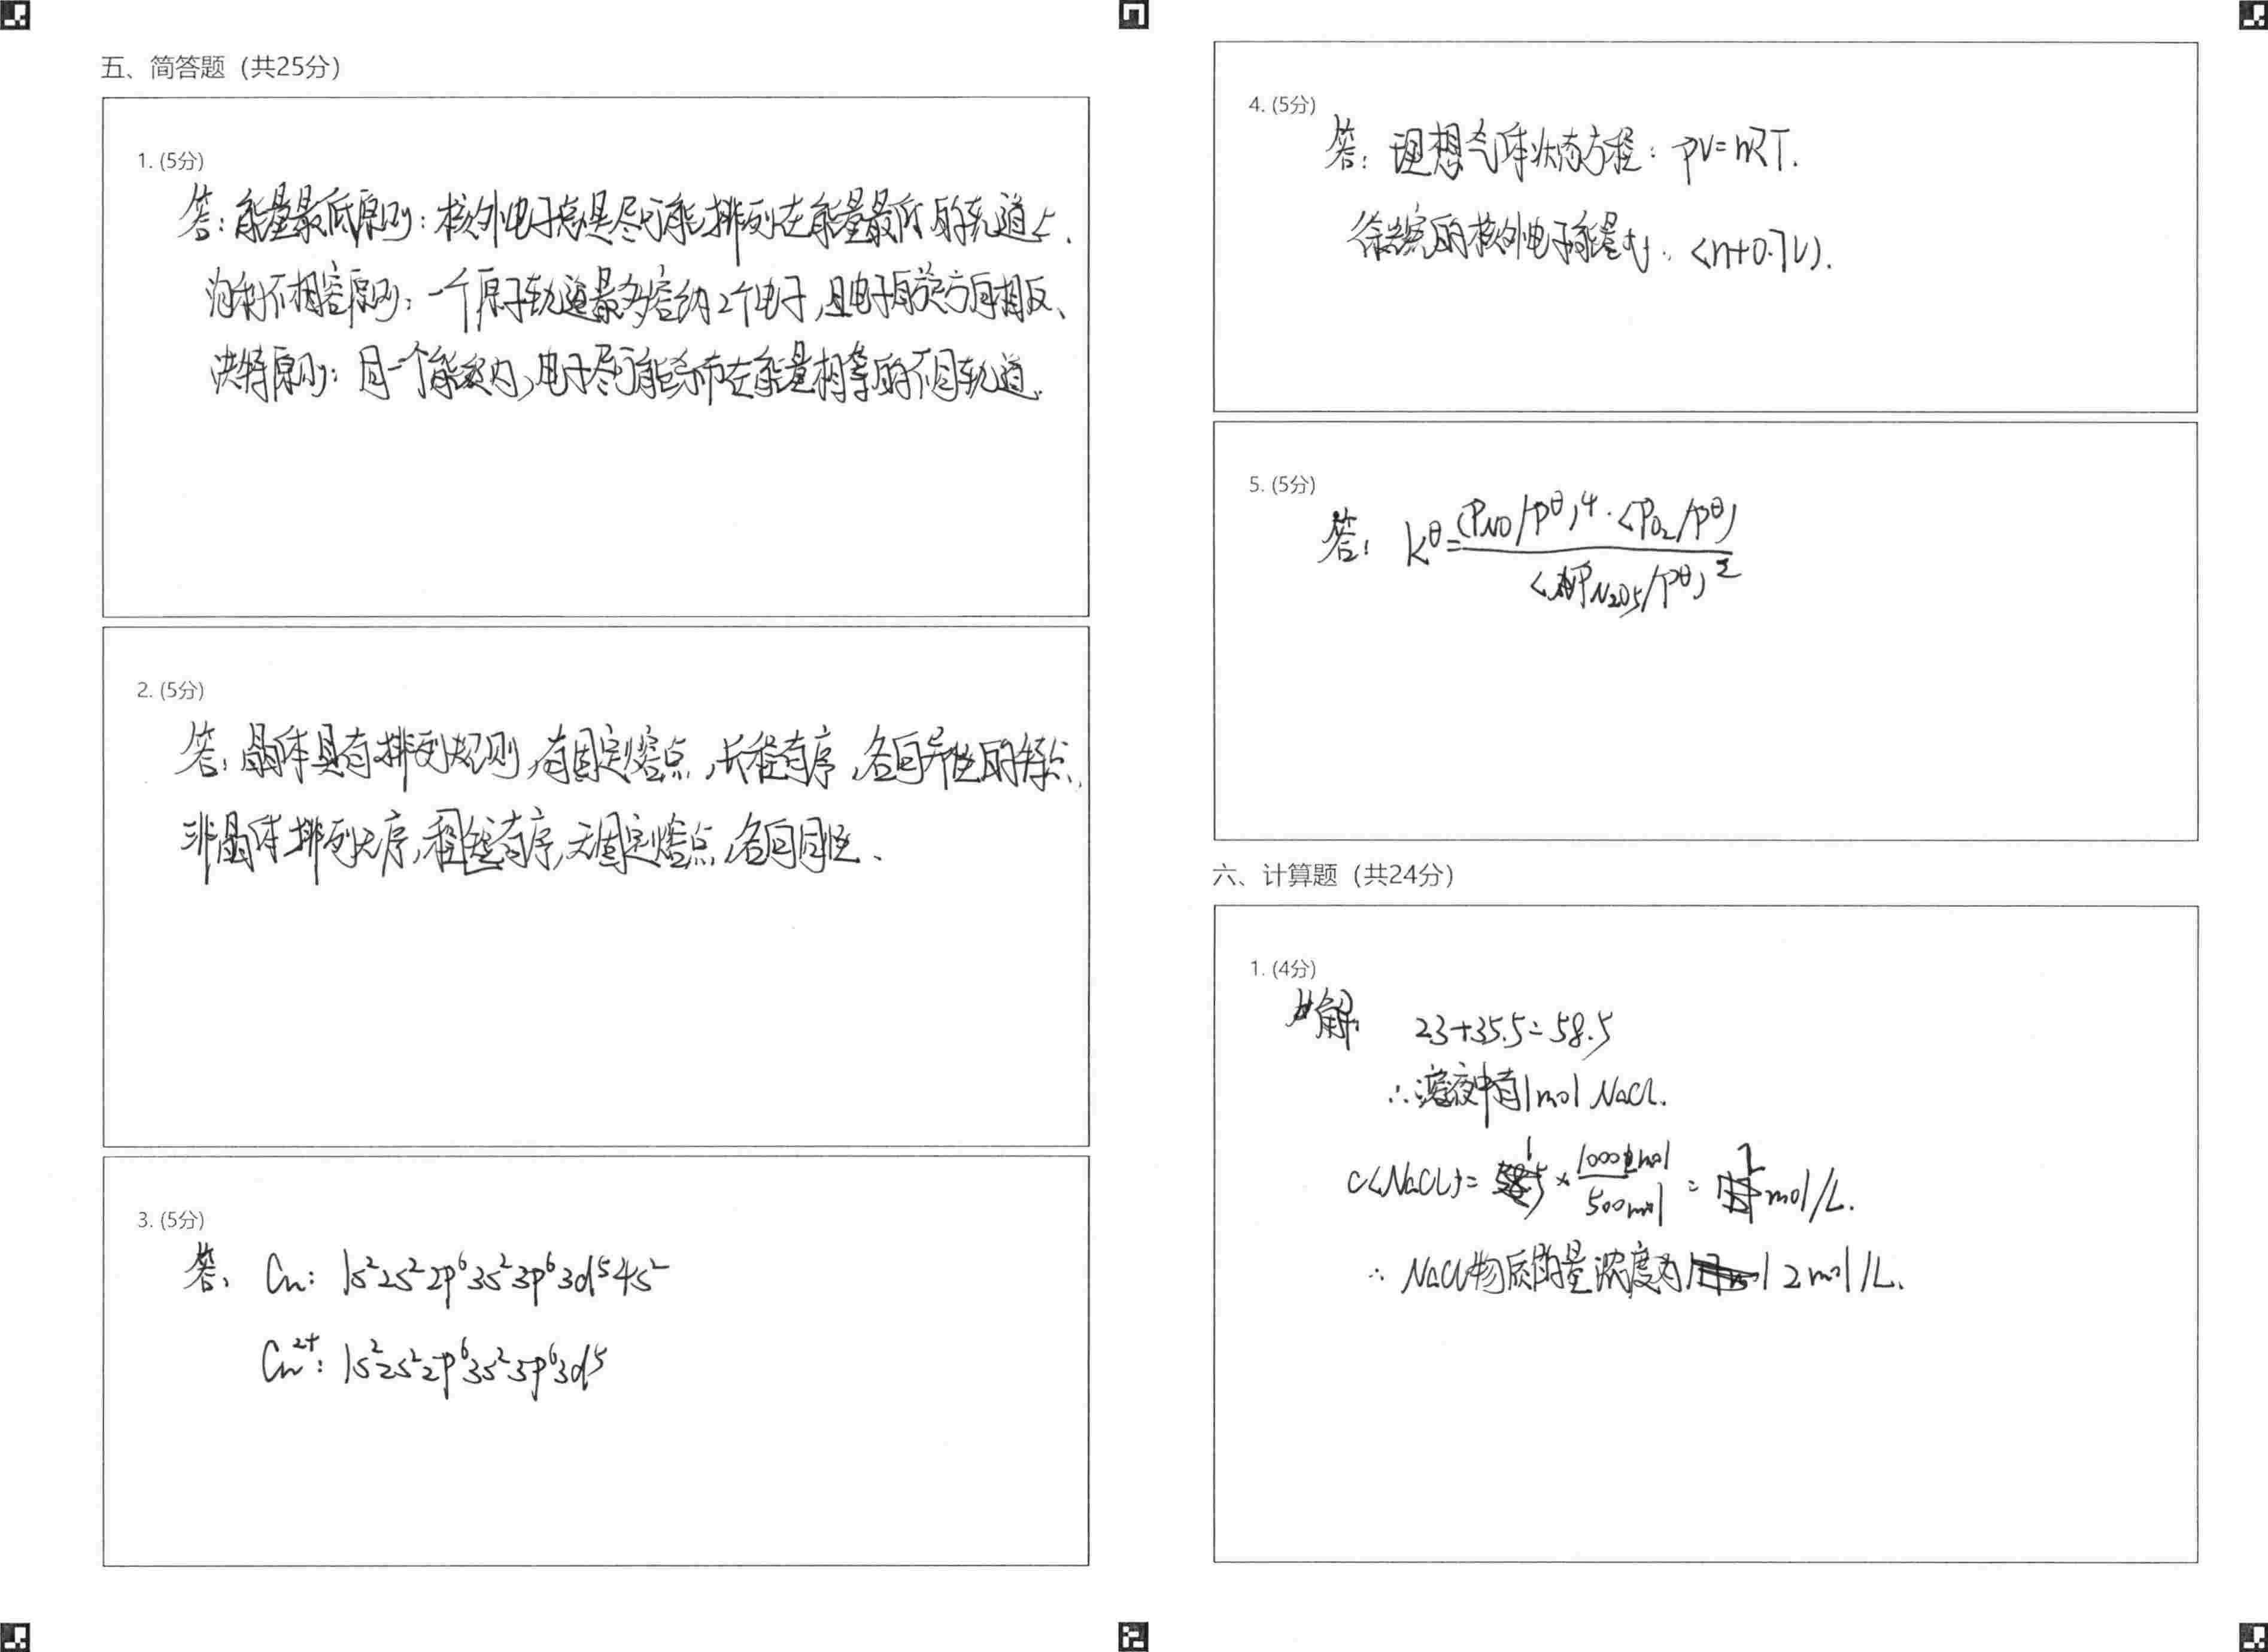 五、简答题（共25分）
1. (5分)
答：能量最低原则：核外电子总是尽可能排列在能量最低的轨道上.
泡利不相容原则：一个原子轨道最多容纳2个电子，且电子自旋方向相反、
洪特原则：同一个能级内，电子尽可能分布在能量相等的不同轨道.
2. (5分)
答：晶体具有排列规则，有固定熔点，长程有序，各向异性的特点，
非晶体排列无序，程短有序，无固定熔点，各向同性、
3. (5分)
答、Cu：1s²2s²2p⁶3s²3p⁶3d⁵4s²
Cu²⁺：1s²2s²2p⁶3s²3p⁶3d⁵
4. (5分)
答：理想气体状态方程：pV=nRT.
徐光宪的核外电子能量为：(n+0.7l).
5. (5分)
答：K^θ=(P_NO/P^θ)⁴·(P_O₂/P^θ)
(P_N₂O₅/P^θ)²
六、计算题（共24分）
1. (4分)
解： 23+35.5=58.5
∴溶液中有1mol NaCl.
c(NaCl)= 1 × 1000ml/500ml = 2 mol/L.
∴ NaCl物质的量浓度为 2mol/L.